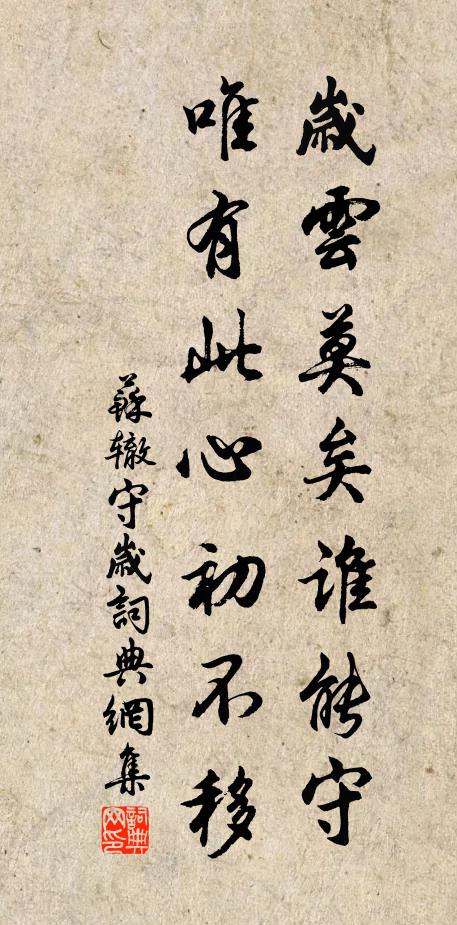 歲雲莫矣誰能守
唯有此心初不移
蘇辙守歲詞典網集
詞典网印